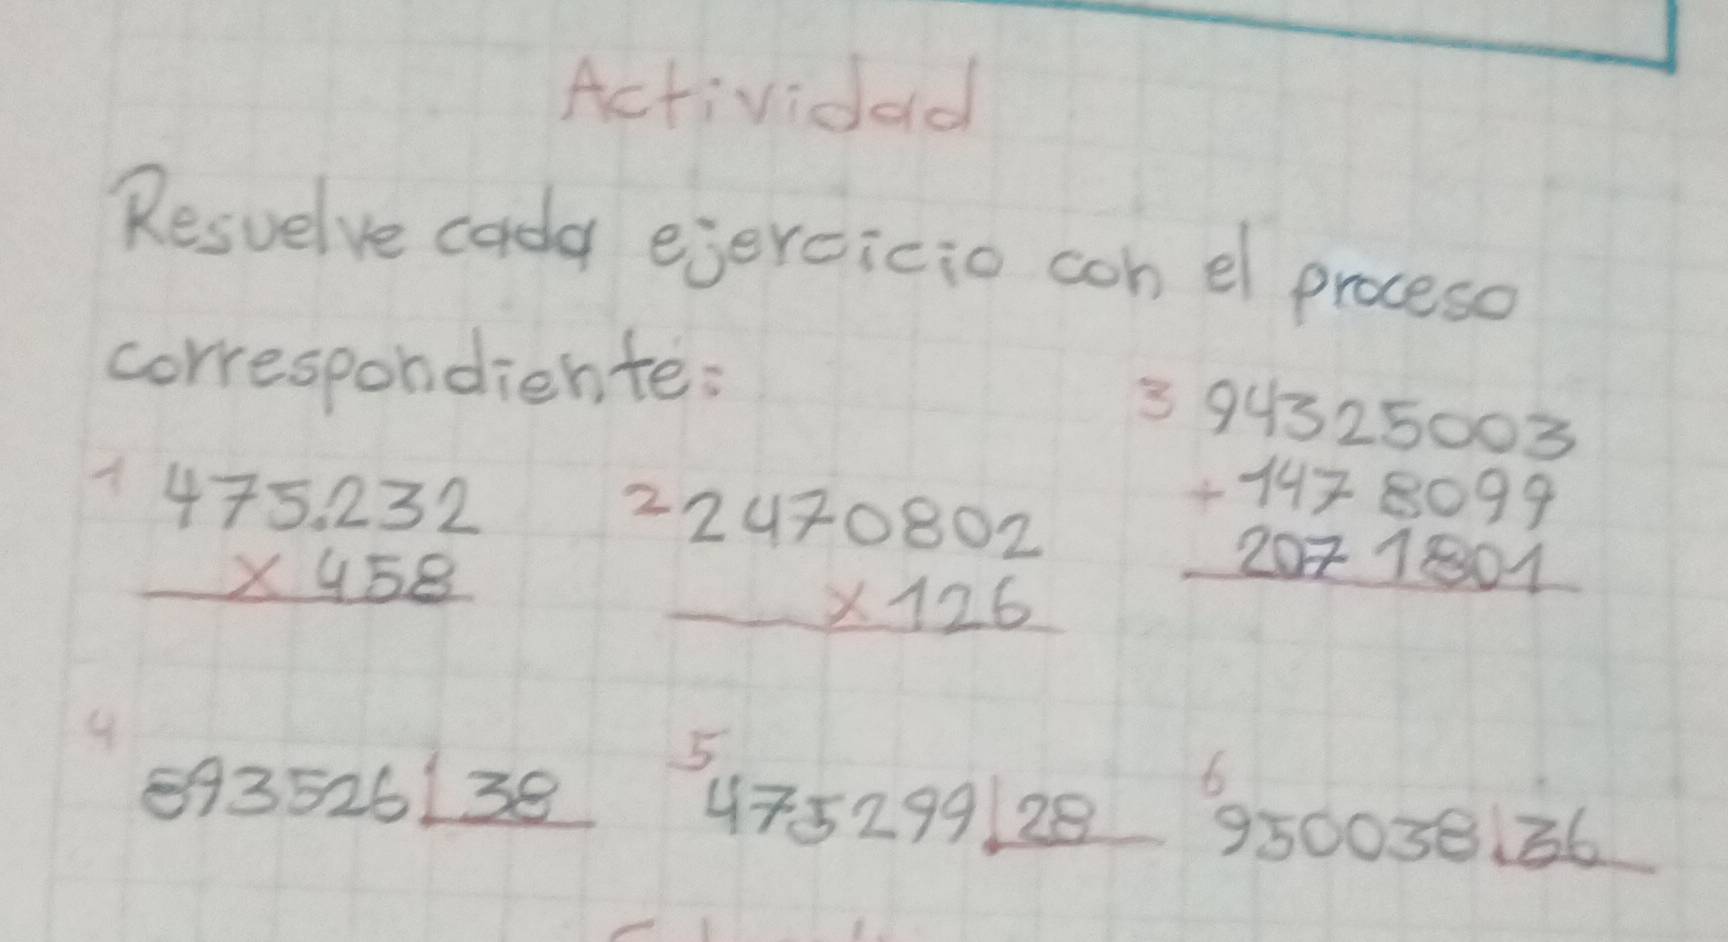 Actividad
Resuelve cada ejercicio con el proceso
correspondiente:
1 475.232
x 458
2 2470802
x 126
3 94325003
+ 1478099
2071801
4 893526 38
5 475299 28
6 950038 36